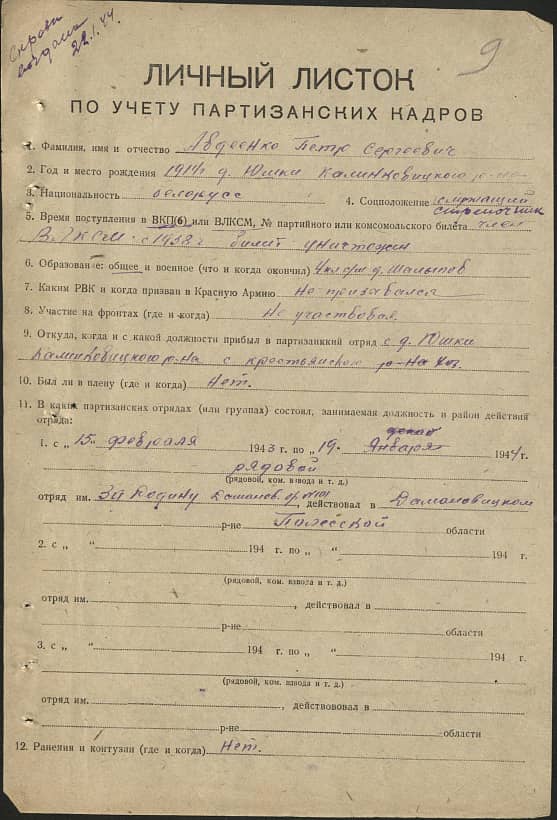 Справка
создана
22.1.44.
9
ЛИЧНЫЙ ЛИСТОК
ПО УЧЕТУ ПАРТИЗАНСКИХ КАДРОВ
1. Фамилия, имя и отчество Авдеенко Петр Сергеевич
2. Год и место рождения 1914г д. Юшки Калинковицкого р-на
3. Национальность белорусс 4. Соцположение служащий
5. Время поступления в ВКП(б) или ВЛКСМ, № партийного или комсомольского билета член
ВЛКСМ с 1938г билет уничтожен
6. Образование: общее и военное (что и когда окончил) д.
7. Каким РВК и когда призван в Красную Армию Не призывался
8. Участие на фронтах (где и когда) Не участвовал
9. Откуда, когда и с какой должности прибыл в партизанский отряд с д. Юшки
Калинковицкого р-на с крестьянского
10. Был ли в плену (где и когда) Нет.
11. В каких партизанских отрядах (или группах) состоял, занимаемая должность и район действий
отряда:
1. с „15" февраля 1943 г. по „19" Января 1944 г.
рядовой
(рядовой, ком. взвода и т. д.)
отряд им. За Родину Доманов. бр. № 101, действовал в Домановицком
р-не Полесской области
2. с „ " 194 г. по „ " 194 г.
(рядовой, ком. взвода и т. д.)
отряд им. , действовал в
р-не области
3. с „ " 194 г. по „ " 194 г.
(рядовой, ком. взвода и т. д.)
отряд им. , действововал в
р-не области
12. Ранения и контузии (где и когда) Нет.